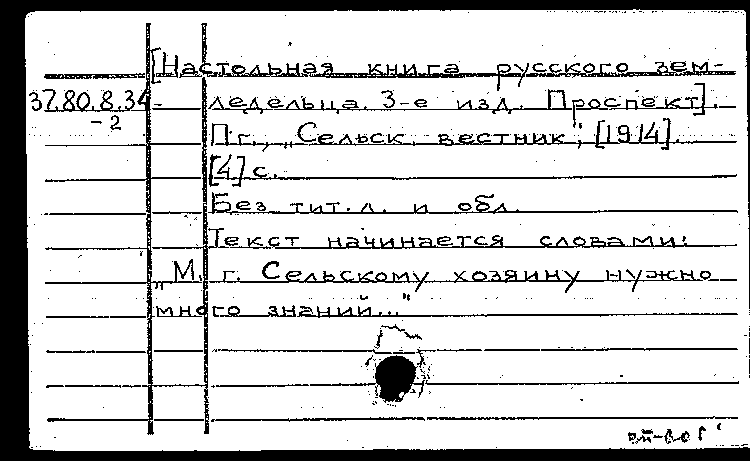 [Настольная книга русского зем-
37.80.8.34- ледельца. 3-е изд. Проспект].
-2
Пг., „Сельск. вестник", [1914].
[4] с.
Без тит. л. и обл.
Текст начинается словами:
„М. г. Сельскому хозяину нужно
много знаний..."